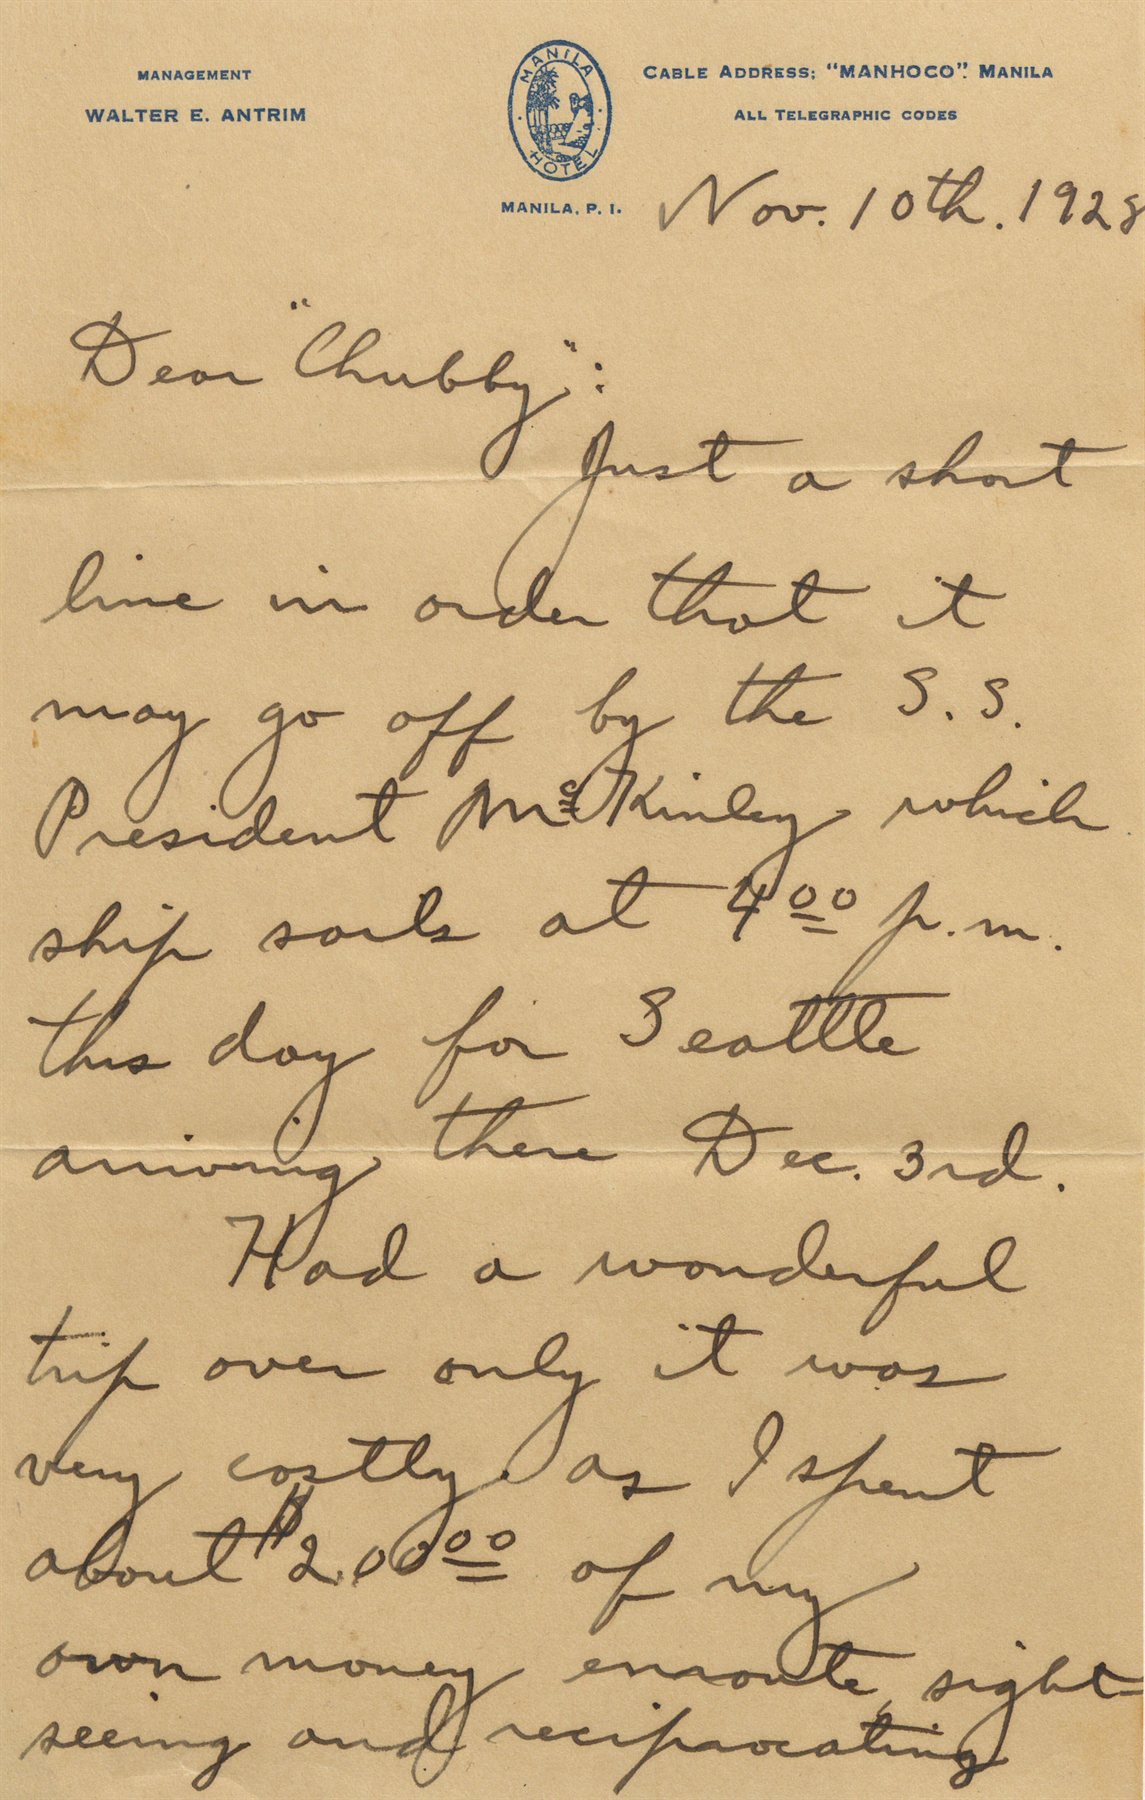 MANAGEMENT
WALTER E. ANTRIM
MANILA
HOTEL
MANILA, P. I.
CABLE ADDRESS; "MANHOCO". MANILA
ALL TELEGRAPHIC CODES
Nov. 10th. 1928
Dear "Chubby":
Just a short
line in order that it
may go off by the S.S.
President McKinley which
ship sails at 4 00 p.m.
this day for Seattle
arriving there Dec. 3rd.
Had a wonderful
trip over only it was
very costly as I spent
about $200 00 of my
own money enroute, sight-
seeing and reciprocating